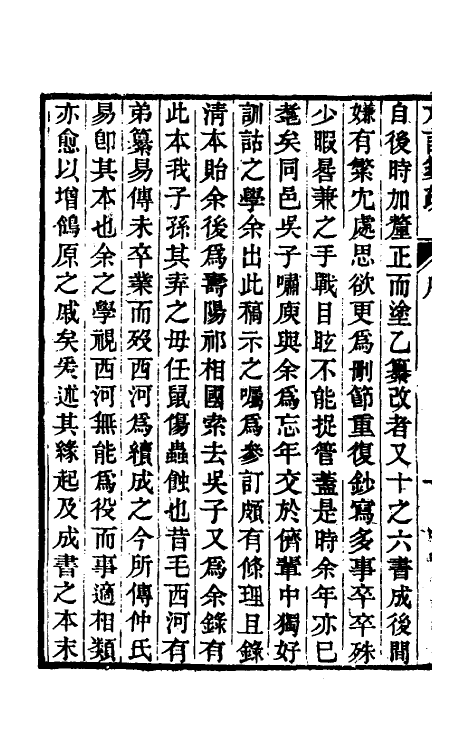 自後時加釐正而塗乙纂改者又十之六書成後間
嫌有繁宂處思欲更爲刪節重復鈔寫多事卒卒殊
少暇晷兼之手戰目眩不能捉管蓋是時余年亦已
耄矣同邑吳子嘯庾與余爲忘年交於儕輩中獨好
訓詁之學余出此稿示之囑爲參訂頗有條理且錄
清本貽余後爲壽陽祁相國索去吳子又爲余錄有
此本我子孫其弆之毋任鼠傷蟲蝕也昔毛西河有
弟纂易傳未卒業而歿西河爲續成之今所傳仲氏
易卽其本也余之學視西河無能爲役而事適相類
亦愈以增鴒原之戚矣爰述其緣起及成書之本末